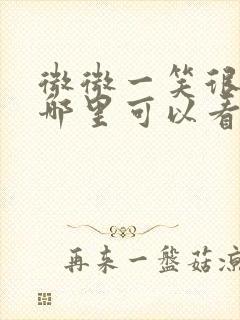 微微一笑很
哪里可以看
再来一盘菇凉